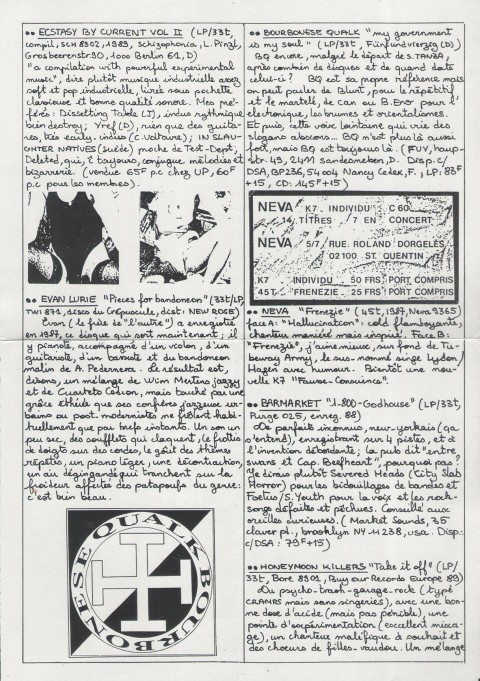 •• ECSTASY BY CURRENT VOL II (LP/33t,
compil, SCH 8902, 1989, Schizophonia, L. Pinzl,
Grossbeerenstr. 90, 1000 Berlin 61, D)
"a compilation with powerful experimental
music", dirs plutôt musique industrielle assez
soft et pop industrielle, livrée sous pochette
classieuse et bonne qualité sonore. Mes pré-
férés: Dissetting Tabele (I), indus rythmique
bien destroy; Yref (D), rien que des guita-
res, très early. indus (circulaire); IN SLAU-
GHTER NATIVES (Suède) moche de Test-Dept;
Deleted, qui, ê toujours, conjugue mélodies et
bizarrerie. (vendue 65F p.c chez UP, 60F
p.c pour les membres).
•• EVAN LURIE "Pieces for bandoneon" (33t/LP,
TWI 871, disco du Crépuscule, dist: NEW ROSE)
Evan (le frère de "l'autre") a enregistré
en 1987, ce disque qui sort maintenant; il
y pianote, accompagné d'un violon, d'un
guitariste, d'un bassiste et du bandoneon
malin de A. Pedernera. Le résultat est,
disons, un mélange de Wim Mertens jazzy
et de Cuarteto Cedron, mais touché par une
grâce éthilis que ses confrères, jazzeux ur-
bains ou post. modernistes ne frôlent habi-
tuellement que par brefs instants. Un son un
peu sec, des soufflets qui claquent, le frottis
de doigts sur des cordes, le goût des thèmes
répétés, un piano léger, une décontraction,
un air dégingandé qui tranchent sur la
froideur affectée des patapoufs du genre:
c'est bien beau.
BOURBONESE QUALK
•• BOURBONESE QUALK "my government
is my soul" (LP/33t, Fünfundvierzig (D)
BQ encore, malgré le départ de S. TANBA,
après combien de disques et de quand date
celui-ci? BQ est sa propre référence mais
on peut parler de Blunt, pour le répétitif
et le martelé, de Can ou B. Eno pour l'
électronique, les brumes et orientalismes.
Et puis, cette voix lointaine qui crie des
slogans abscons... BQ n'est plus là aussi
fort, mais BQ est toujours là. (FÜV, haup-
str. 43, 2411 sandesneben, D. Disp. c/
DSA, BP236, 54004 Nancy Cedex, F., LP: 83F
+15, CD: 145F+15)
NEVA K7 . INDIVIDU C 60
14 TITRES / 7 EN CONCERT
NEVA 5/7, RUE. ROLAND DORGELES
02100 ST. QUENTIN
K7 INDIVIDU 50 FRS PORT COMPRIS
45T 'FRENEZIE 25 FRS PORT COMPRIS
•• NEVA "Frenzie" (45t, 1987, Neva 9365)
face A: "Hallucination": cold flamboyante,
chanteur maniéré mais inspiré. Face B:
"Frenezie", j'aime mieux, sur fond de Tu-
beway Army, le sus-nommé singe Lydon/
Hagen avec humour. Bientôt une nou-
velle K7 "Fausse-Conscience".
•• BARMARKET "1-800-Godhouse" (LP/33t,
Purge 025, enreg. 88)
De parfaits inconnus, new-yorkais (ça
s'entend), enregistrant sur 4 pistes, et à
l'invention débordante; la pub dit "entre
swans et Cap. Beefheart", pourquoi pas?
Je dirais plutôt Severed Heads (City Slab
Horror) pour les bidouillages de bandes et
Foetus/S. Youth pour la voix et les rock-
songs défaites et pêchues. Conseillé aux
oreilles curieuses. (Market Sounds, 75
claver pl., brooklyn NY 11238, usa. Disp.
c/DSA: 79F+15)
•• HONEYMOON KILLERS "Take it off" (LP/
33t, Bore 8901, Buy our Records Europe 89)
Du psycho-trash-garage-rock (type
CRAMPS mais sans singeries), avec une bon-
ne dose d'acide (mais pas pénible), une
pointe d'expérimentation (excellent mixa-
ge), un chanteur maléfique à souhait et
des choeurs de filles-vaudou. Un mélange